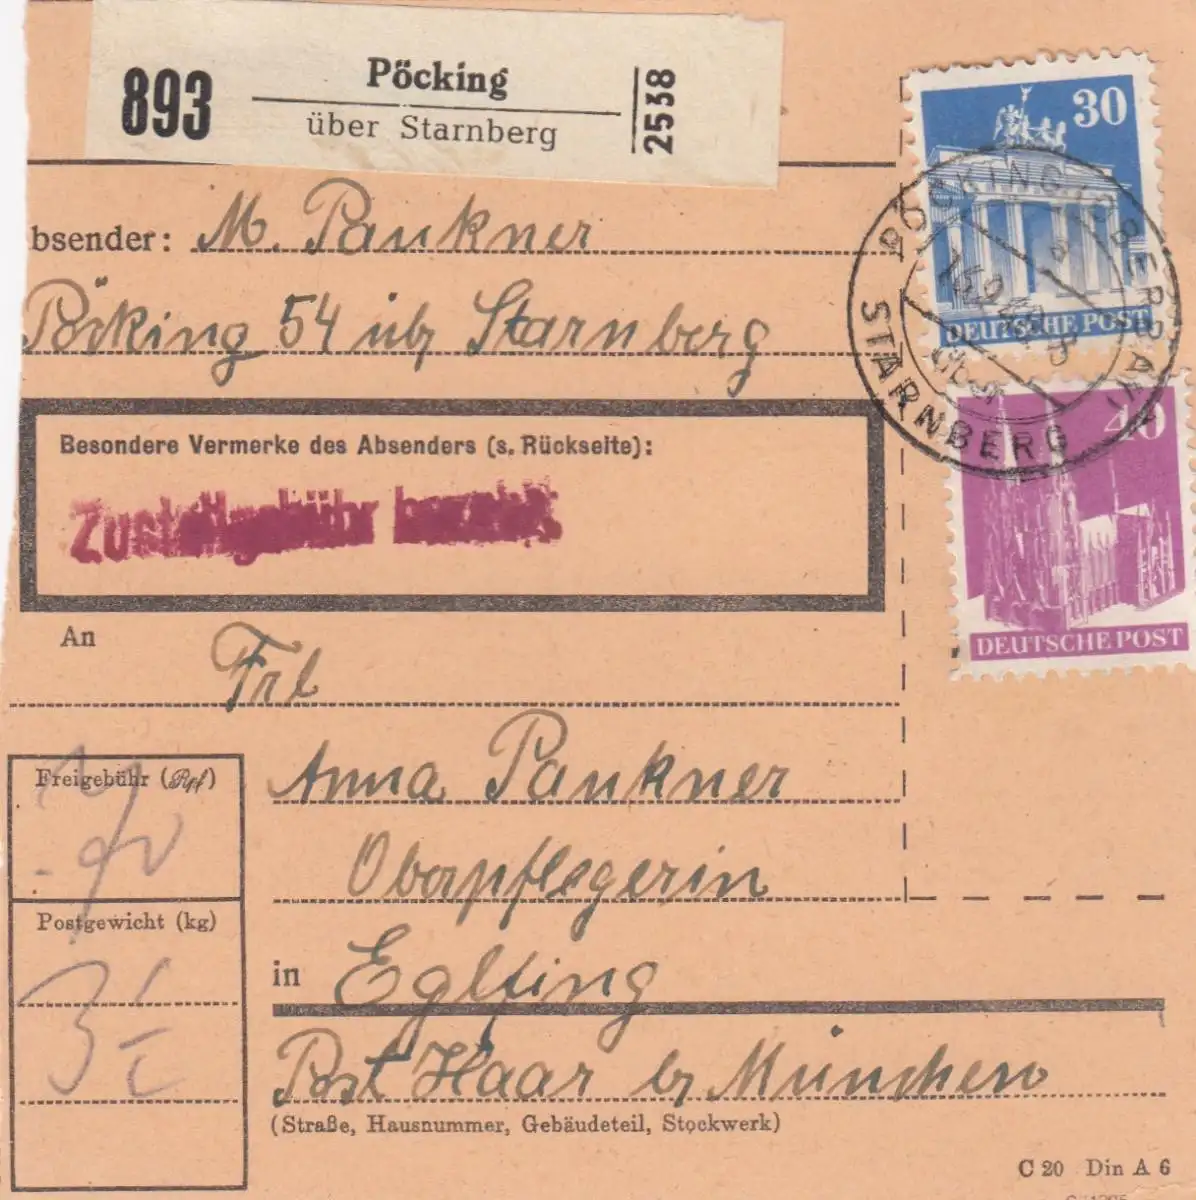 893
Pöcking
über Starnberg
2538
bsender: M. Paukner
Pöcking 54 üb Starnberg
Besondere Vermerke des Absenders (s. Rückseite):
Zustellgebühr bezahlt
30
DEUTSCHE POST
40
DEUTSCHE POST
STARNBERG
über
An
Frl
Anna Paukner
Oberpflegerin
in Eglfing
Post Haar b/ München
(Straße, Hausnummer, Gebäudeteil, Stockwerk)
Freigebühr (Rpf)
Postgewicht (kg)
C 20 Din A 6